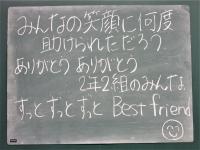 みんなの笑顔に何度
助けられただろう
ありがとう ありがとう
2年2組のみんな
ずっとずっとずっと Best friend